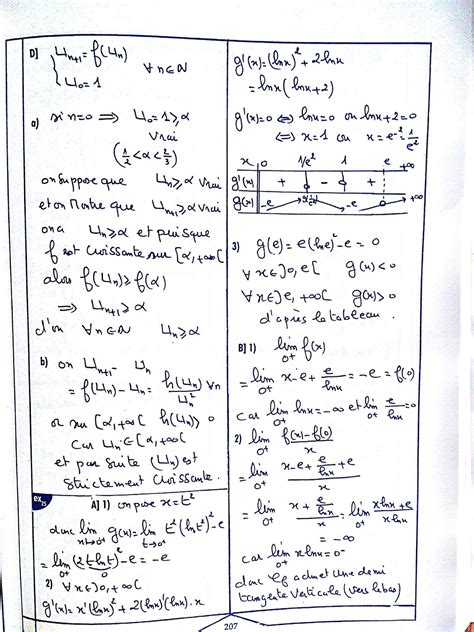 D] { Un+1 = f(Un)
U0 = 1 ∀n∈ℕ
a) si n=0 ⟹ U0 ⩾ α
Vrai
(1/2 < α < 2/3)
on suppose que Un ⩾ α vrai
et on Montre que Un+1 ⩾ α vrai
on a Un ⩾ α et puisque
f est croissante sur [α, +∞[
alors f(Un) ⩾ f(α)
⟹ Un+1 ⩾ α
d'où ∀n∈ℕ Un ⩾ α
b) on Un+1 - Un
= f(Un) - Un = h(Un)/Un² ∀n
or sur [α, +∞[ h(Un) ⩾ 0
Car Un ∈ [α, +∞[
et par suite (Un) est
strictement croissante.
ex25 A] 1) on pose x = t²
donc lim x→0+ g(x) = lim t→0+ t²(ln t²)² - e
= lim 0+ (2t ln t)² - e = -e
0
2) ∀x∈]0, +∞[
g'(x) = x'(ln x)² + 2(ln x)'(ln x).x
g'(x) = (ln x)² + 2 ln x
= ln x (ln x + 2)
g'(x) = 0 ⟺ ln x = 0 ou ln x + 2 = 0
⟺ x = 1 ou x = e⁻² = 1/e²
x 0 1/e² 1 e +∞
g'(x) + 0 - 0 +
g(x) -e -e 0 +∞
3) g(e) = e(ln e)² - e = 0
∀x∈]0, e[ g(x) < 0
∀x∈]e, +∞[ g(x) > 0
d'après le tableau.
B] 1) lim 0+ f(x)
= lim 0+ x - e + e/ln x = -e = f(0)
car lim 0+ ln x = -∞ et lim 0+ e/ln x = 0
2) lim 0+ (f(x) - f(0))/x
= lim 0+ (x - e + e/ln x + e)/x
= lim 0+ (x + e/ln x)/x = lim 0+ (x ln x + e)/(x ln x)
= -∞
car lim 0+ x ln x = 0⁻
donc Cf admet une demi
tangente verticale (vers le bas)
207